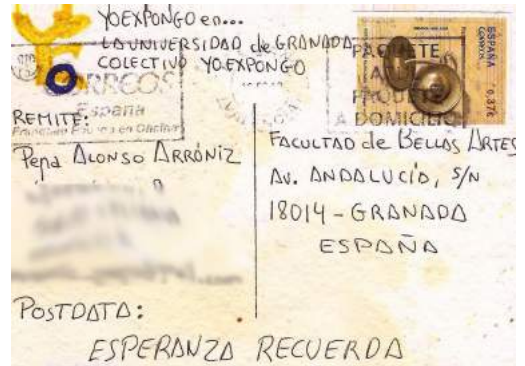 YOEXPONGO en...
LA UNIVERSIDAD de GRANADA
COLECTIVO YOEXPONGO
CORREOS
España
Franqueo Pagado en Oficina
PAQUETE
A
PAQUETE
A DOMICILIO
ESPAÑA
CORREOS
0,37€
REMITE:
Pepa ALONSO ARRÓNIZ
FACULTAD de BELLAS ARTES
AV. ANDALUCÍA, S/N
18014 - GRANADA
ESPAÑA
POSTDATA:
ESPERANZA RECUERDA